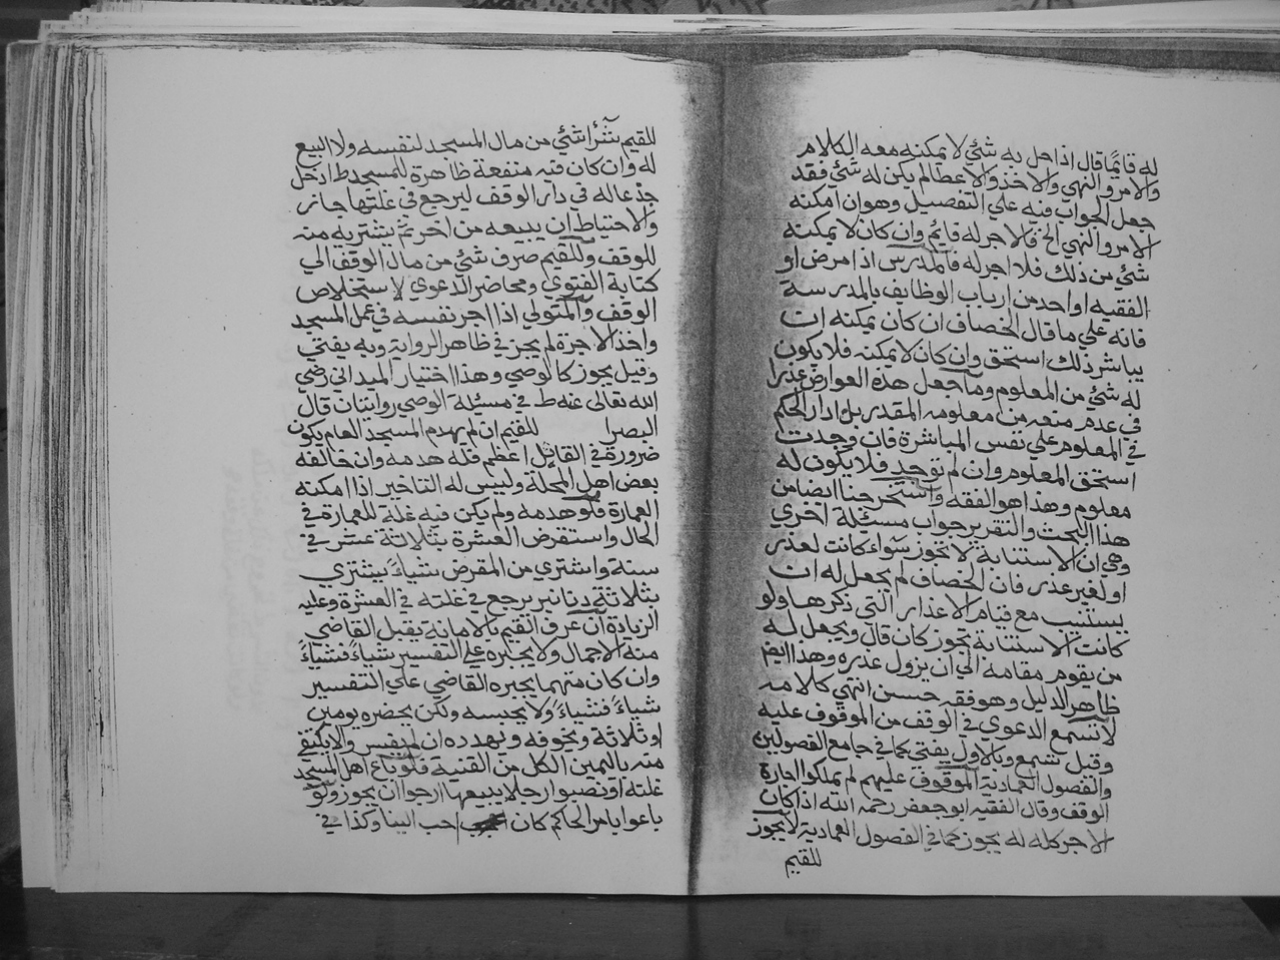 له قائما قال اذا حل به شئ لا يمكنه معه الكلام
والامر والنهي والاخذ والاعطا لم يكن له شئ فقد
جعل الجواب فيه علي التفصيل وهو ان امكنه
الامر والنهي الخ فالاجر له قايم وان كان لا يمكنه
شئ من ذلك فلا اجر له فالمدرس اذا مرض او
الفقيه او احد من ارباب الوظايف بالمدرسة
فانه علي ما قال الخصاف ان كان يمكنه ان
يباشر ذلك استحق وان كان لا يمكنه فلا يكون
له شئ من المعلوم وما جعل هذه العوارض عذرا
في عدم منعه من معلومه المقدر بل ادار الحكم
في المعلوم علي نفس المباشرة فان وجدت
استحق المعلوم وان لم توجد فلا يكون له
معلوم وهذا هو الفقه واستخرجنا ايضا من
هذا البحث والتقرير جواب مسئلة اخري
وهي ان الاستنابة لا تجوز سواء كانت لعذر
او لغير عذر فان الخصاف لم يجعل له ان
يستنيب مع قيام الاعذار التي ذكرها ولو
كانت الاستنابة تجوز كان قال ويجعل له
من يقوم مقامه الي ان يزول عذره وهذا ايض
ظاهر الدليل وهو فقه حسن انتهي كلامه
لا تسمع الدعوي في الوقف من الموقوف عليه
وقيل تسمع وبالاول يفتي كما في جامع الفصولين
والفصول العمادية الموقوف عليهم لم يملكوا اجارة
الوقف وقال الفقيه ابو جعفر رحمه الله اذا كان
الاجر كله له يجوز كما في الفصول العمادية لا يجوز
للقيم
للقيم شراء شئ من مال المسجد لنفسه ولا البيع
له وان كان فيه منفعة ظاهرة للمسجد ط ادخل
جذعا له في دار الوقف ليرجع في غلتها جاز
والاحتياط ان يبيعه من اخر ثم يشتريه منه
للوقف وللقيم صرف شئ من مال الوقف الي
كتابة الفتوي ومحاضر الدعوي لاستخلاص
الوقف والمتولي اذا اجر نفسه في عمل المسجد
واخذ الاجرة لم يجز في ظاهر الرواية وبه يفتي
وقيل يجوز كالوصي وهذا اختيار الميداني رضي
الله تعالى عنه ط في مسئلة الوصي روايتان قال
البصرا للقيم ان لم يهدم المسجد العام يكون
ضرورة في القابل اعظم فله هدمه وان خالفه
بعض اهل المحلة وليس له التاخير اذا امكنه
العمارة فلو هدمه ولم يكن فيه غلة للعمارة في
الحال واستقرض العشرة بثلاثة عشر في
سنة واشتري من المقرض شياء يشتري
بثلاثة دنانير يرجع في غلته في العشرة وعليه
الزيادة ان عرف القيم بالامانة يقبل القاضي
منه الاجمال ولا يجبره علي التفسير شياء فشياء
وان كان متهما يجبره القاضي علي التفسير
شياء فشياء ولا يحبسه ولكن يحضره يومين
او ثلاثة ويخوفه ويهدده ان لم يفسر والا يكتفي
منه باليمين الكل من القنية فلو باع اهل المسجد
غلته او نصبوا رجلا يبيعها ارجوا ان يجوز ولو
باعوا بامر الحاكم كان احب الينا وكذا في